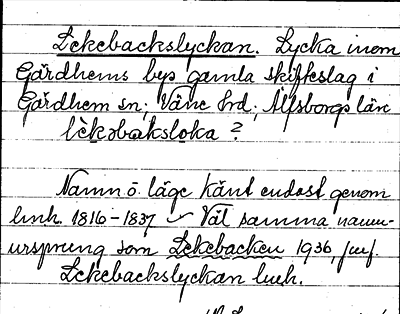 Lekebackslyckan. Lycka inom
Gärdhems bys gamla skifteslag i
Gärdhem sn; Väne hd; Älfsborgs län
lèkəbaksløka ?
Namn o. läge känt endast genom
lmh. 1816-1837 – Väl samma namn-
ursprung som Lekebacken 1936, jmf.
Lekebackslyckan lmh.